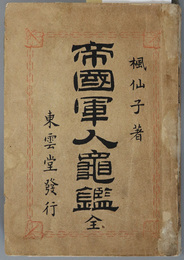 楓仙子著
帝國軍人龜鑑 全
東雲堂發行